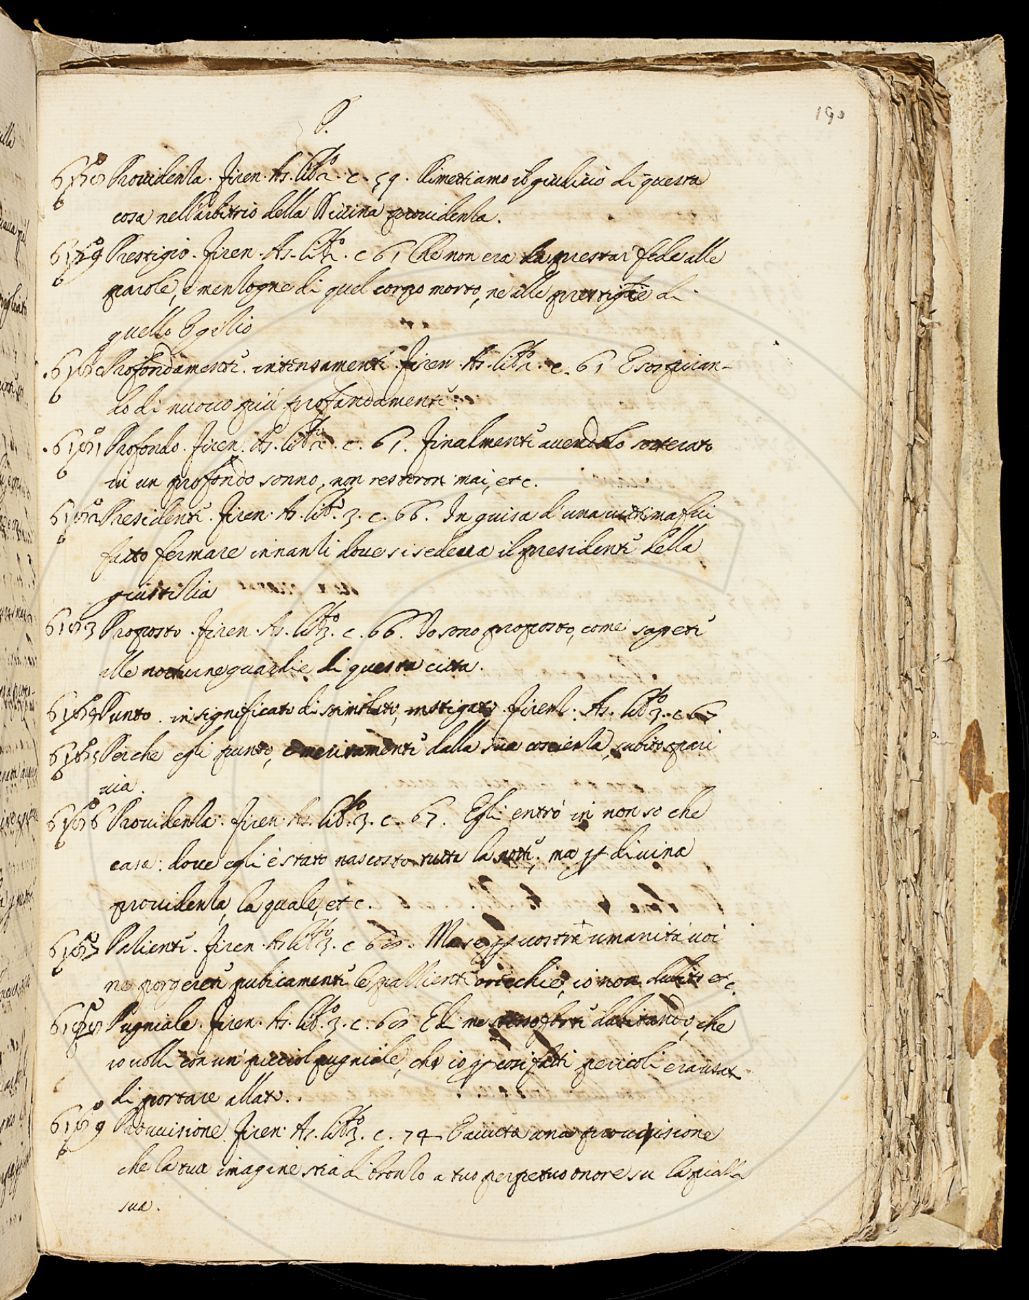 190
P.
Providenza. Firen. As. lib.º 2. c. 59. Rimettiamo il giudicio di questa
cosa nell'arbitrio della Divina providenza.
Prestigio. Firen. As. lib.º 2. c 61 Che non era da prestar fede alle
parole, e menzogne di quel corpo morto, ne alle prestigie di
quello Egizio
Profondamente. intensamente. Firen As. lib.º 2. c. 61 E
do di nuovo più profondamente.
Profondo. Firen. As. lib.º 2. c. 61. Finalmente avendolo sotterato
in un profondo sonno, non resteron mai, etc.
Presidente. Firen. As. lib.º 3. c. 66. In guisa d'una vittima
fatto fermare innanzi dove si sedeva il presidente della
giustizia
Proposto. Firen. As. lib.º 3. c. 66. Io sono proposto, come sapete
alle notturne guardie di questa citta.
Punto. in significato di stimolato, instigato. Firenz. As. lib.º 3. c 67
Perche egli punto, e meritamente dalla sua coscienza, subito spari
via.
Providenza. Firen. As. lib.º 3. c. 67. Egli entrò in non so che
casa: dove egli è stato nascosto tutta la notte, ma p divina
providenza, la quale, etc.
Pazienti. Firen. As. lib.º 3. c 68. Ma se p vostra umanità voi
ne porgerete publicamente le pazienti orecchie, io non dubito etc.
Pugnale. Firen. As. lib.º 3. c. 68 che
io volli con un picciol pugnale, che io p cosi fatti pericoli era usat
di portare allato.
Provvisione. Firen. As. lib.º 3. c. 74 E avuta una provvisione
che la tua imagine stia di bronzo a tuo perpetuo onore su la piazza
sua.